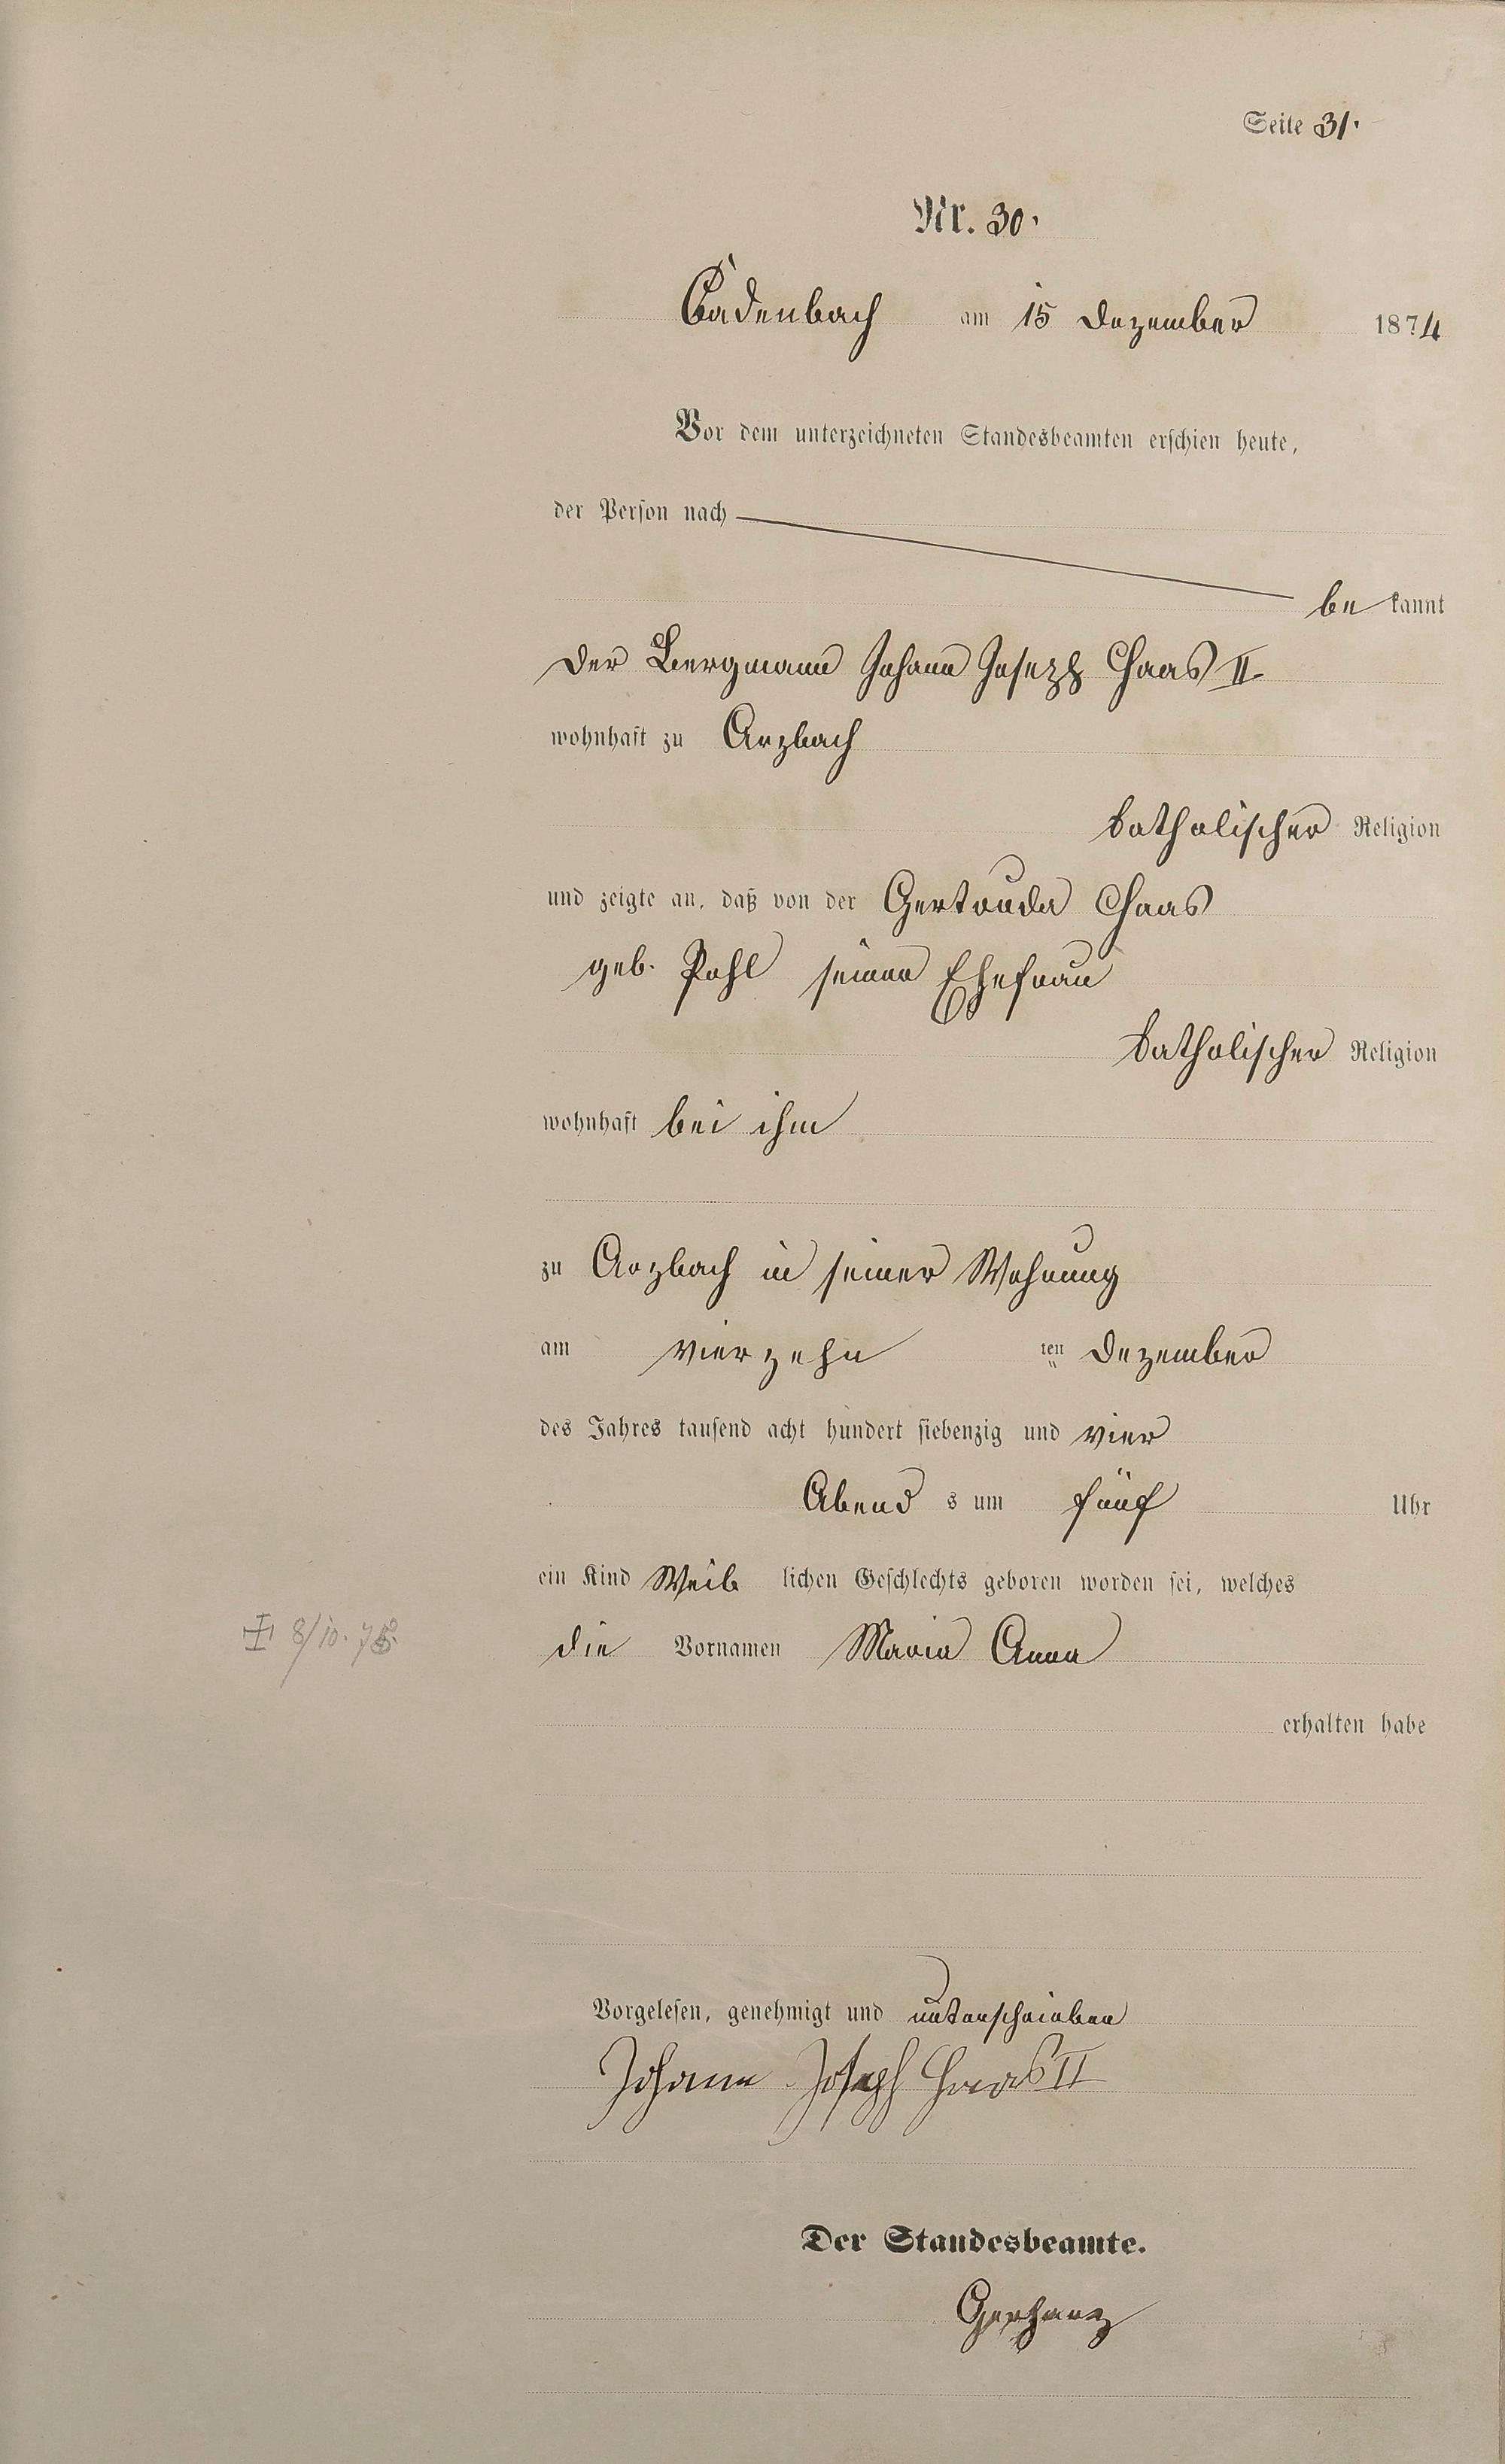 Seite 31.
Nr. 30.
Cadenbach am 15 Dezember 1874
Vor dem unterzeichneten Standesbeamten erschien heute,
der Person nach
be kannt
der Bergmann Johann Joseph Haas II
wohnhaft zu Arzbach
katholischer Religion
und zeigte an, daß von der Gertruda Haas
geb. Pohl seiner Ehefrau
katholischer Religion
wohnhaft bei ihm
zu Arzbach in seiner Wohnung
am vierzehn ten Dezember
des Jahres tausend acht hundert siebenzig und vier
Abend s um fünf Uhr
ein Kind Weib lichen Geschlechts geboren worden sei, welches
die Vornamen Maria Anna
erhalten habe
Vorgelesen, genehmigt und unterschrieben
Johann Joseph Haas II
Der Standesbeamte.
Gerharz